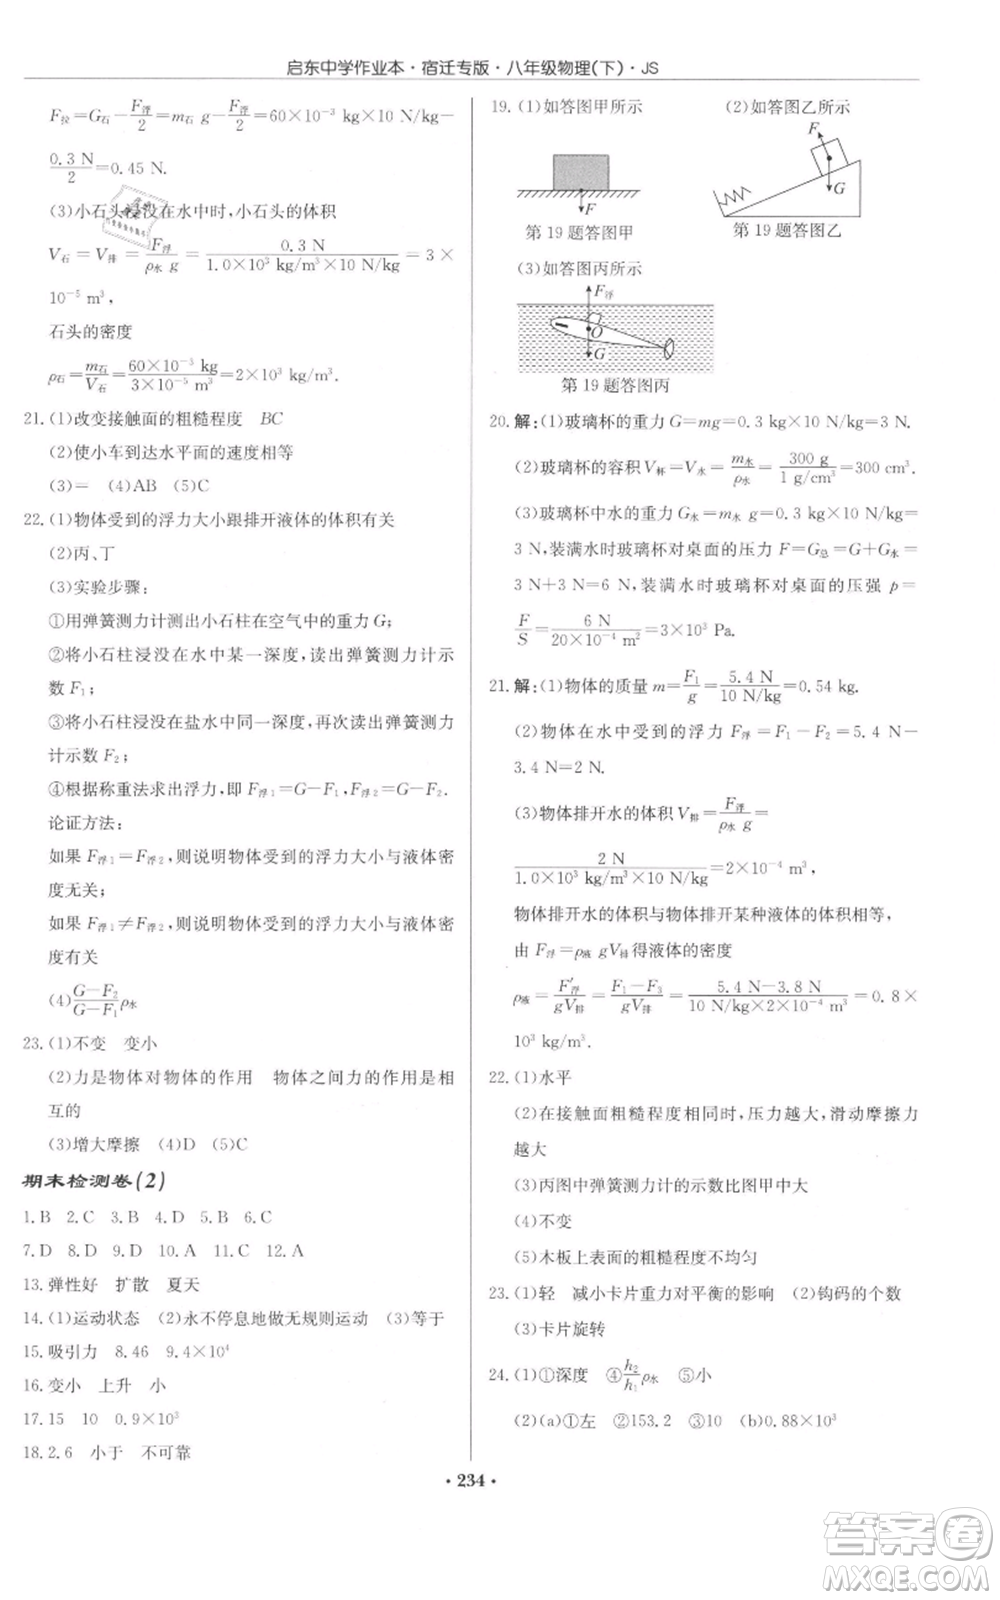 启东中学作业本·宿迁专版·八年级物理(下)·JS
F拉=G石-F浮/2=m石 g-F浮/2=60×10⁻³ kg×10 N/kg-
0.3 N/2=0.45 N.
(3)小石头浸没在水中时,小石头的体积
V石=V排=F浮/ρ水 g=0.3 N/1.0×10³ kg/m³×10 N/kg=3×
10⁻⁵ m³,
石头的密度
ρ石=m石/V石=60×10⁻³ kg/3×10⁻⁵ m³=2×10³ kg/m³.
21.(1)改变接触面的粗糙程度 BC
(2)使小车到达水平面的速度相等
(3)= (4)AB (5)C
22.(1)物体受到的浮力大小跟排开液体的体积有关
(2)丙、丁
(3)实验步骤:
①用弹簧测力计测出小石柱在空气中的重力 G;
②将小石柱浸没在水中某一深度,读出弹簧测力计示
数 F₁;
③将小石柱浸没在盐水中同一深度,再次读出弹簧测力
计示数 F₂;
④根据称重法求出浮力,即 F浮1=G-F₁,F浮2=G-F₂.
论证方法:
如果 F浮1=F浮2,则说明物体受到的浮力大小与液体密
度无关;
如果 F浮1≠F浮2,则说明物体受到的浮力大小与液体密
度有关
(4)G-F₂/G-F₁ρ水
23.(1)不变 变小
(2)力是物体对物体的作用 物体之间力的作用是相
互的
(3)增大摩擦 (4)D (5)C
期末检测卷(2)
1.B 2.C 3.B 4.D 5.B 6.C
7.D 8.D 9.D 10.A 11.C 12.A
13.弹性好 扩散 夏天
14.(1)运动状态 (2)永不停息地做无规则运动 (3)等于
15.吸引力 8.46 9.4×10⁴
16.变小 上升 小
17.15 10 0.9×10³
18.2.6 小于 不可靠
19.(1)如答图甲所示 (2)如答图乙所示
F
F
G
第 19 题答图甲 第 19 题答图乙
(3)如答图丙所示
F浮
O
G
第 19 题答图丙
20.解:(1)玻璃杯的重力 G=mg=0.3 kg×10 N/kg=3 N.
(2)玻璃杯的容积 V杯=V水=m水/ρ水=300 g/1 g/cm³=300 cm³.
(3)玻璃杯中水的重力 G水=m水 g=0.3 kg×10 N/kg=
3 N,装满水时玻璃杯对桌面的压力 F=G总=G+G水=
3 N+3 N=6 N,装满水时玻璃杯对桌面的压强 p=
F/S=6 N/20×10⁻⁴ m²=3×10³ Pa.
21.解:(1)物体的质量 m=F₁/g=5.4 N/10 N/kg=0.54 kg.
(2)物体在水中受到的浮力 F浮=F₁-F₂=5.4 N-
3.4 N=2 N.
(3)物体排开水的体积 V排=F浮/ρ水 g=
2 N/1.0×10³ kg/m³×10 N/kg=2×10⁻⁴ m³,
物体排开水的体积与物体排开某种液体的体积相等,
由 F浮=ρ液 gV排得液体的密度
ρ液=F′浮/gV排=F₁-F₃/gV排=5.4 N-3.8 N/10 N/kg×2×10⁻⁴ m³=0.8×
10³ kg/m³.
22.(1)水平
(2)在接触面粗糙程度相同时,压力越大,滑动摩擦力
越大
(3)丙图中弹簧测力计的示数比图甲中大
(4)不变
(5)木板上表面的粗糙程度不均匀
23.(1)轻 减小卡片重力对平衡的影响 (2)钩码的个数
(3)卡片旋转
24.(1)①深度 ④h₂/h₁ρ水 ⑤小
(2)(a)①左 ②153.2 ③10 (b)0.88×10³
·234·
答案圈
MXQE.COM